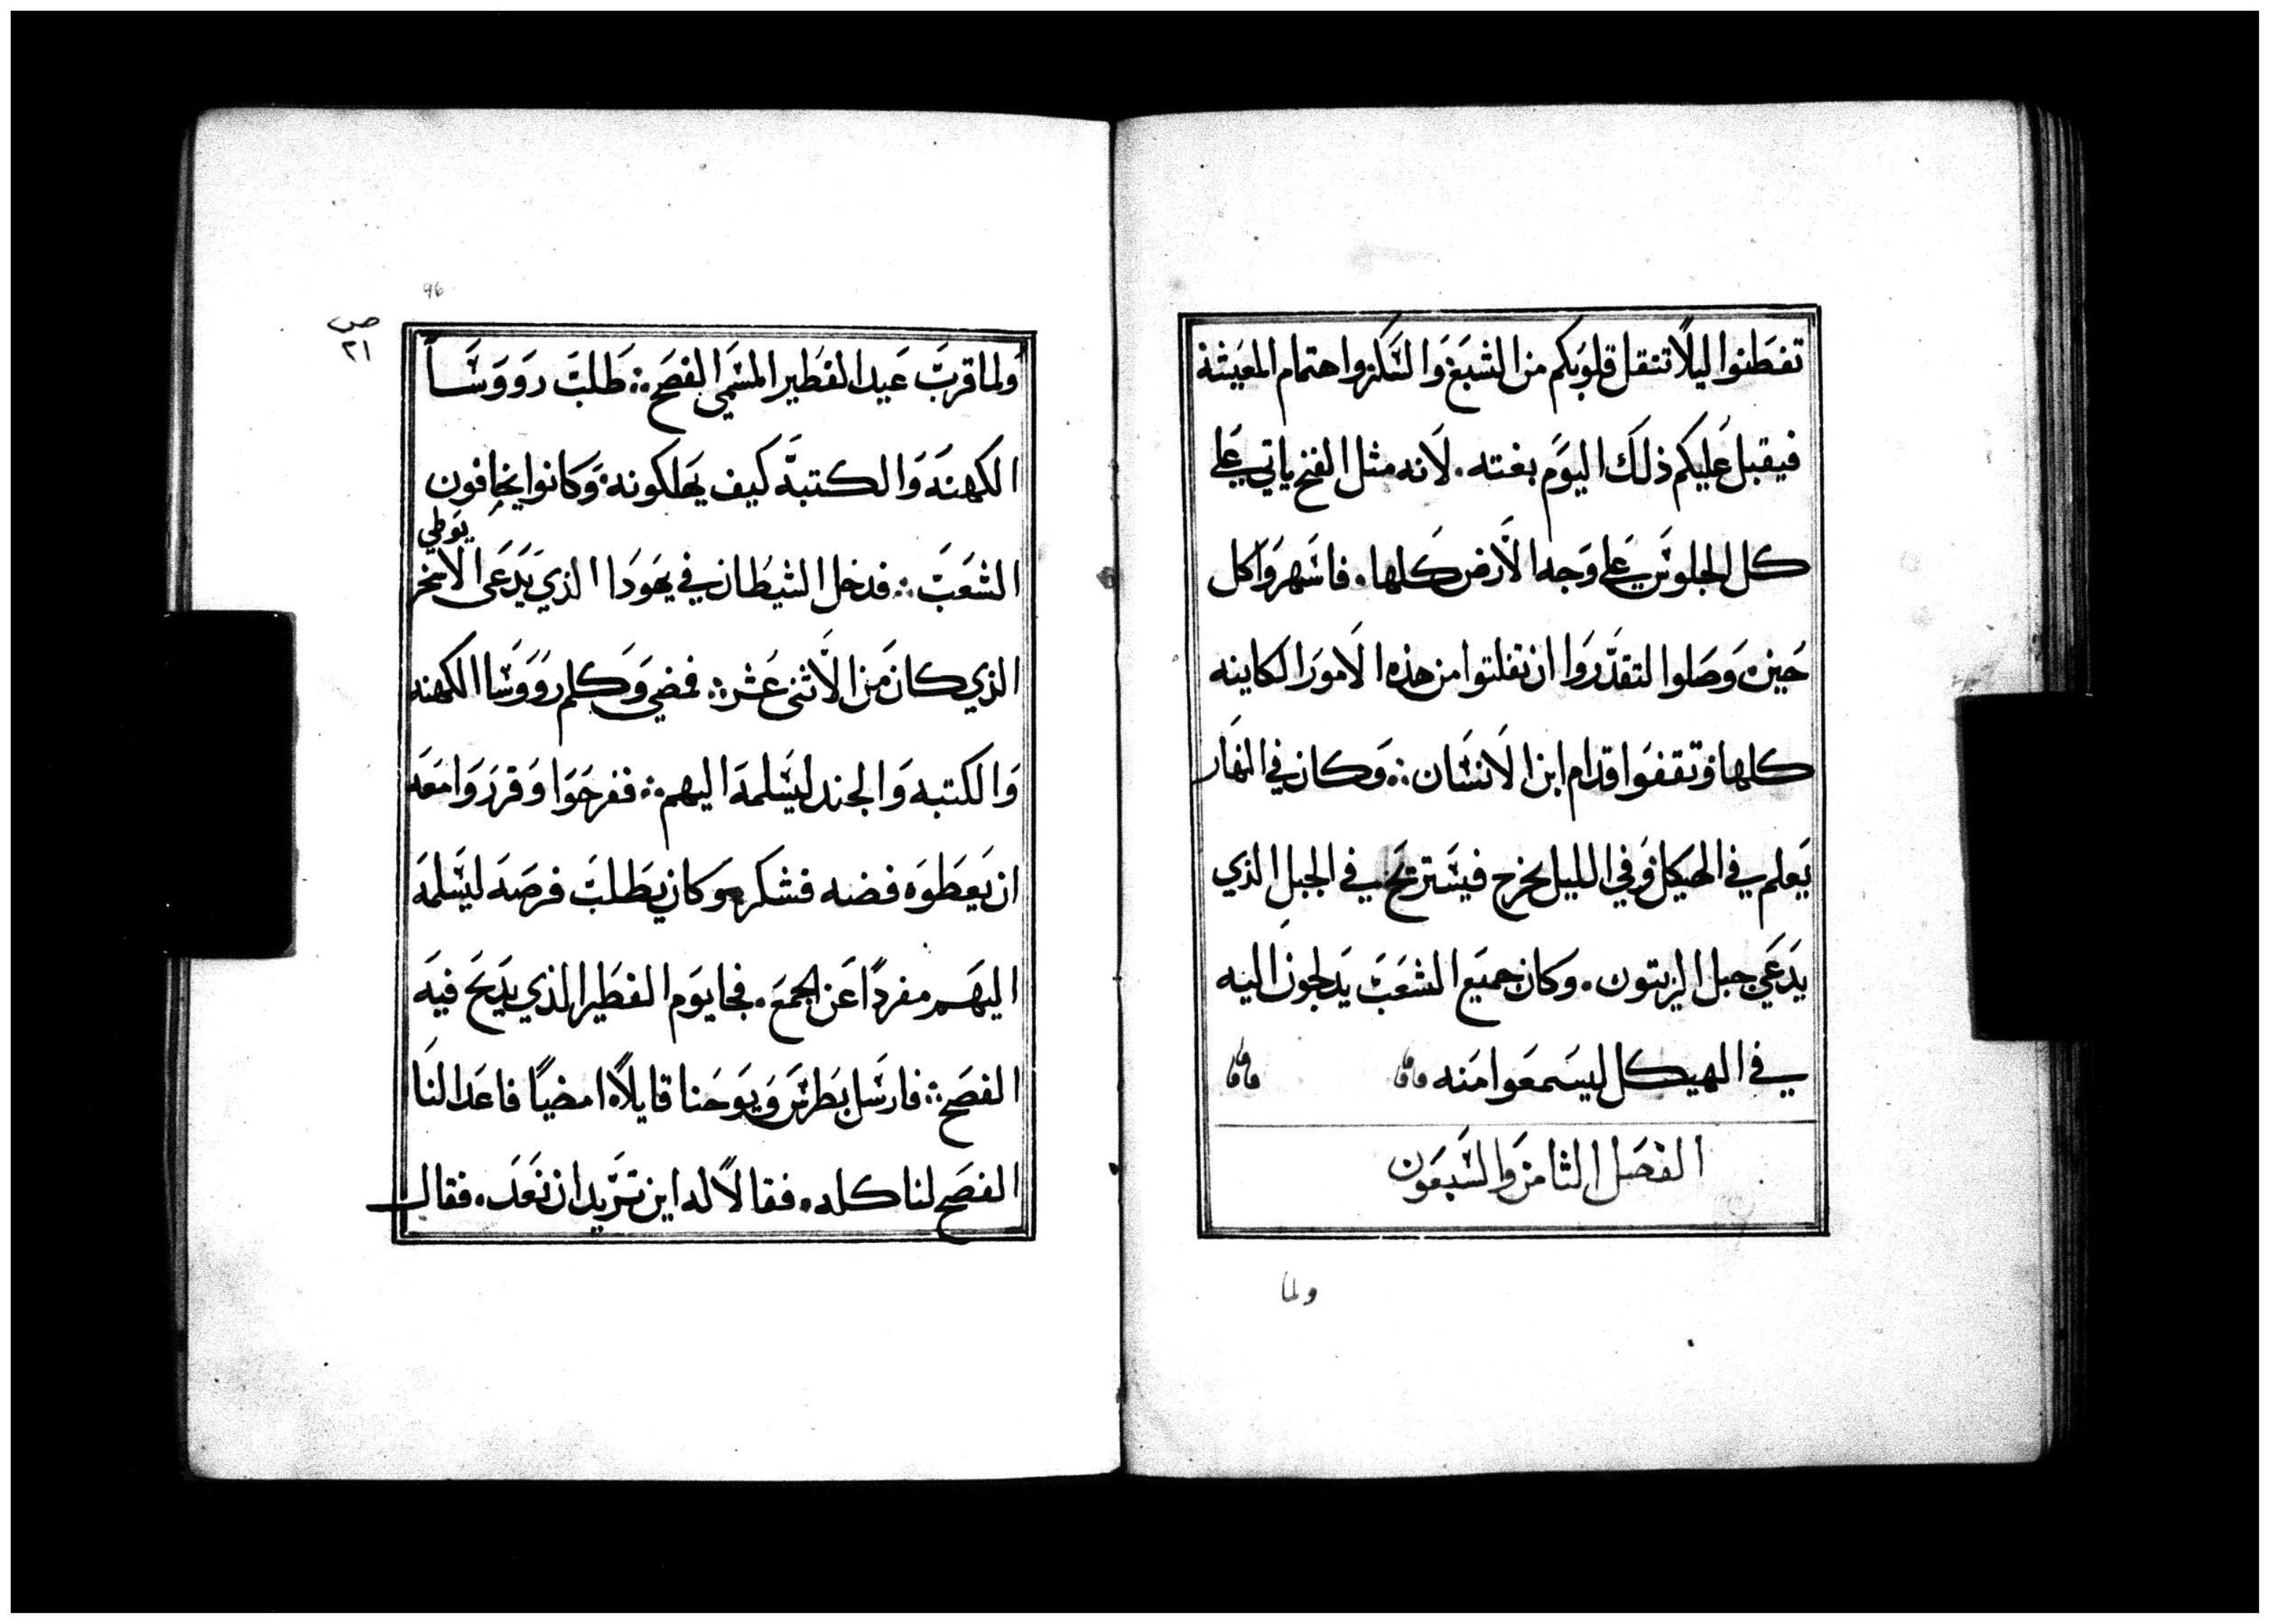 تفطنوا ليلًا تثقل قلوبكم من الشبع والسكر واهتمام المعيشه
فيقبل عليكم ذلك اليوم بغته. لانه مثل الفخ ياتي على
كل الجلوس على وجه الارض كلها. فاسهروا كل
حين وصلوا لتقدروا ان تفلتوا من هذه الامور الكاينه
كلها وتقفوا قدام ابن الانسان ⁘ وكان في النهار
يعلم في الهيكل وفي الليل يخرج فيستريح في الجبل الذي
يدعي جبل الزيتون. وكان جميع الشعب يدلجون اليه
في الهيكل ليسمعوا منه
الفصل الثامن والسبعون
ولما
96
ص
٢١
ولما قرب عيد الفطير المسمي الفصح ⁘ طلب رووسا
الكهنه والكتبه كيف يهلكونه وكانوا يخافون
يوطي
الشعب ⁘ فدخل الشيطان في يهودا الذي يدعى الاسخر
الذي كان من الاثنى عشر ⁘ فمضي وكلم رووسا الكهنه
والكتبه والجند ليسلمه اليهم ⁘ ففرحوا وقرروا معه
ان يعطوه فضه فشكر وكان يطلب فرصه ليسلمه
اليهم مفردًا عن الجمع. فجا يوم الفطير الذي يدبح فيه
الفصح ⁘ فارسل بطرس ويوحنا قايلًا امضيا فاعدا لنا
الفصح لنا كله. فقالا له اين تريد ان نعد. فقال